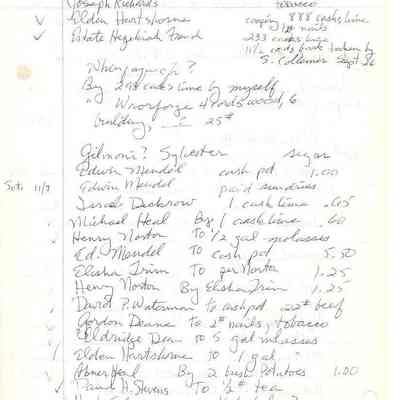 Joseph Richards tobacco
Elden Hartshorne cooping 888 casks lime
2 lb nails
Estate Hezekiah French 233 casks large
11½ cords bark taken by
S. Collamer Sept. 26
When paynch?
By 29# casks lime by myself
" 4 cords wood, 6
building, 25#
Gilmoni? Sylvester sugar
Edwin Mendel cash pd 1.00
Sat. 11/7 Edwin Mendel paid sundries
Jacob Deckrow 1 cask lime .65
Michael Heal By 1 cask lime .60
Henry Norton To ½ gal. molasses
Ed. Mendel To cash pd 5.50
Elisha Trim To per Norton 1.25
Henry Norton By Elisha Trim 1.25
David P. Waterman to cash pd 22# beef
Gordon Deane to 2# nails, tobacco
Eldridge Dean to 5 gal molasses
Elden Hartshorne to 1 gal. "
Abner Heal By 2 bush Potatoes 1.00
Paul H. Stevens To ½# tea